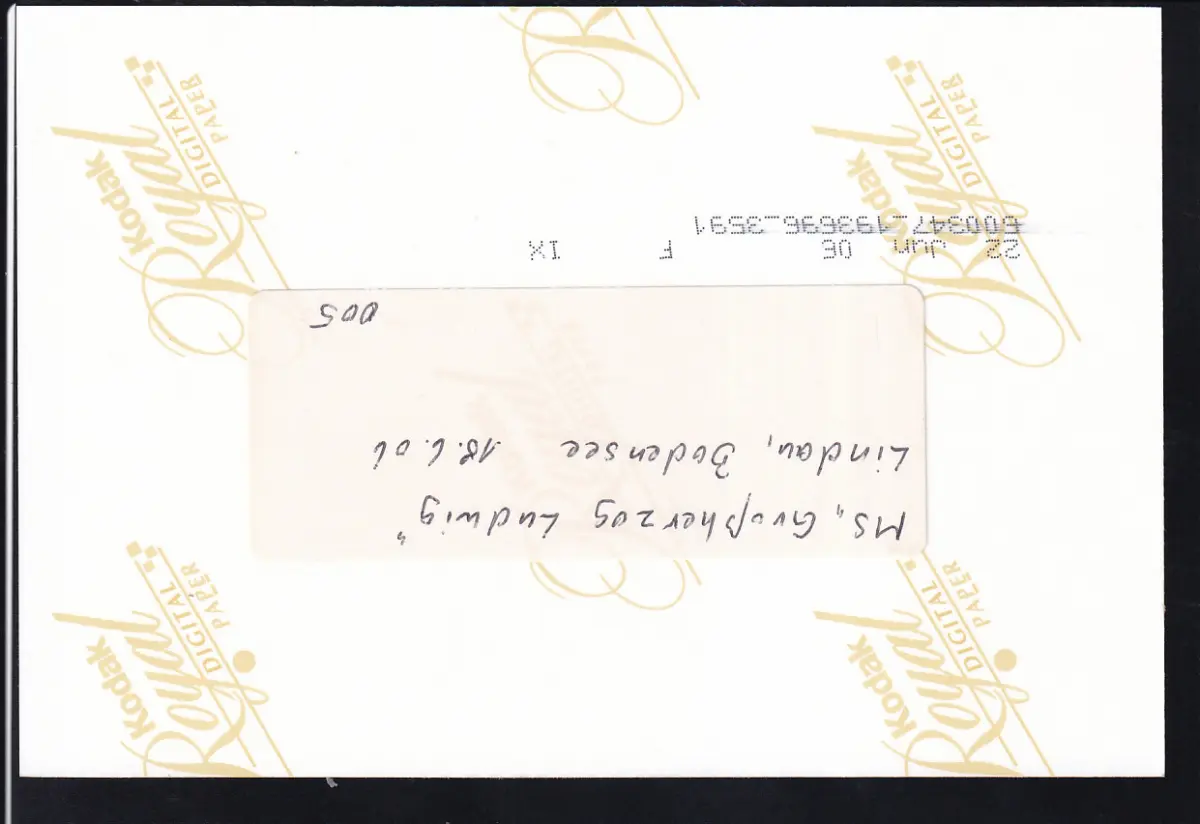 Kodak
Royal
DIGITAL
PAPER
Kodak
Royal
DIGITAL
PAPER
MS „Großherzog Ludwig“
Lindau, Bodensee 18.6.06
005
22 Jun 06 F IX
600347_193696_3591
Kodak
Royal
DIGITAL
PAPER
Kodak
Royal
DIGITAL
PAPER